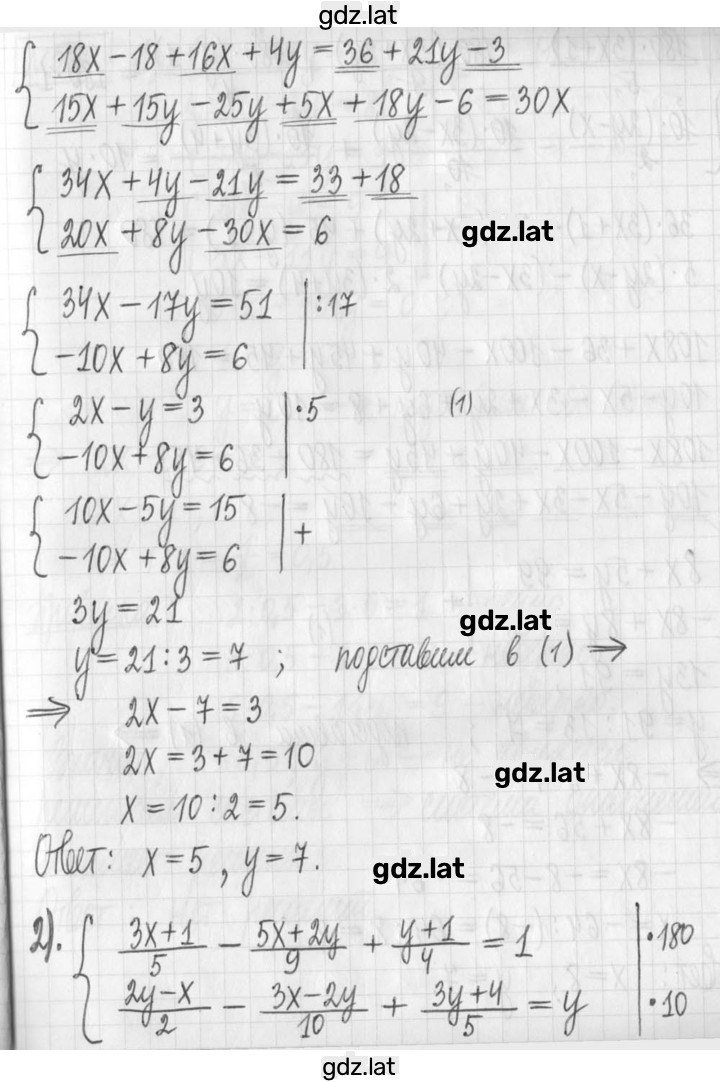 gdz.lat
{ 18x − 18 + 16x + 4y = 36 + 21y − 3
15x + 15y − 25y + 5x + 18y − 6 = 30x
{ 34x + 4y − 21y = 33 + 18
20x + 8y − 30x = 6 gdz.lat
{ 34x − 17y = 51 | :17
−10x + 8y = 6
{ 2x − y = 3 | ·5 (1)
−10x + 8y = 6
{ 10x − 5y = 15 | +
−10x + 8y = 6
3y = 21 gdz.lat
y = 21 : 3 = 7 ; подставим в (1) ⇒
⇒ 2x − 7 = 3
2x = 3 + 7 = 10 gdz.lat
x = 10 : 2 = 5.
Ответ: x = 5 , y = 7. gdz.lat
2). { (3x+1)/5 − (5x+2y)/9 + (y+1)/4 = 1 | ·180
(2y−x)/2 − (3x−2y)/10 + (3y+4)/5 = y | ·10
gdz.lat